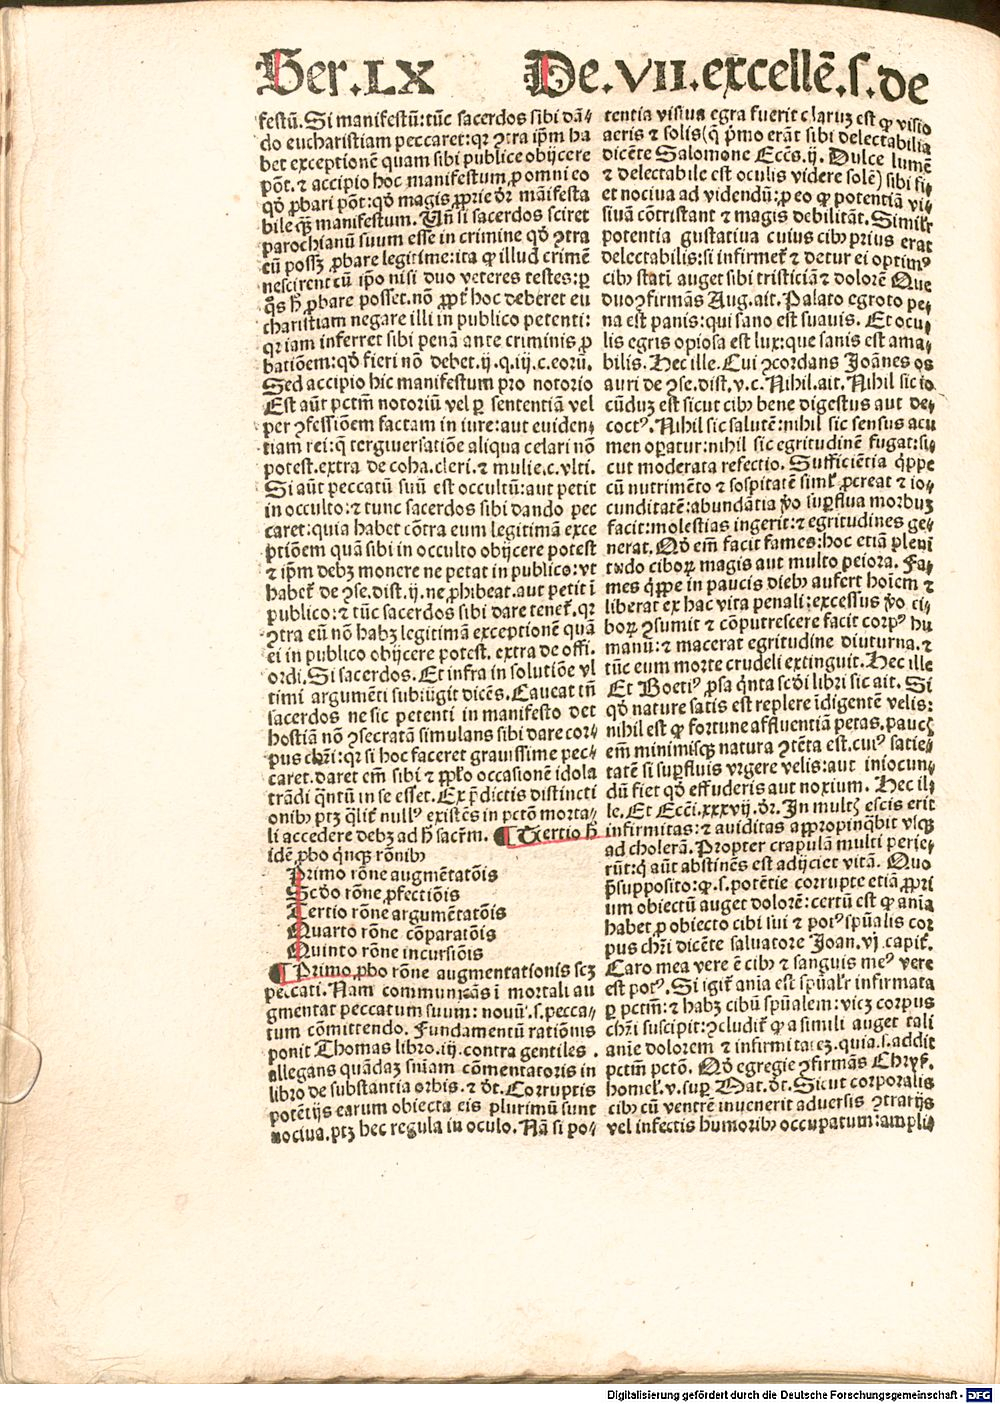 Ser.LX De.VII.excellẽ.s.de
festũ.Si manifestũ:tũc sacerdos sibi dã⸗
do eucharistiam peccaret:qꝛ ꝯtra ip̃m ha
bet exceptionẽ quam sibi publice obijcere
põt.⁊ accipio hoc manifestum,ꝓ omni eo
qḋ ꝓbari põt:qḋ magis ꝓprie dr̃ mãifesta
bile qꝫ̃ manifestum. Uñ si sacerdos sciret
parochianũ suum esse in crimine qḋ ꝯtra
eũ possꝫ ꝓbare legitime:ita ꝙ illud crimẽ
nescirent cũ ip̃o nisi duo veteres testes:ꝑ
q̃s h̃ ꝓbare posset.nõ ꝓpt̃ hoc deberet eu
charistiam negare illi in publico petenti:
qꝛ iam inferret sibi penã ante criminis ꝓ
batiõem:qḋ fieri nõ debet.ij.q.iij.c.eorũ.
Sed accipio hic manifestum pro notorio
Est aũt pctm̃ notoriũ vel ꝑ sententiã vel
per ꝯfessiõem factam in iure:aut euiden⸗
tiam rei:q̃ tergiuersatiõe aliqua celari nõ
potest.extra de coha.cleri.⁊ mulie.c.vlti.
Si aũt peccatũ suũ est occultũ:aut petit
in occulto:⁊ tunc sacerdos sibi dando pec
caret:quia habet cõtra eum legitimã exce
ptiõem quã sibi in occulto obijcere potest
⁊ ip̃m debꝫ monere ne petat in publico:vt
habet̃ de ꝯse.dist.ij.ne ꝓhibeat.aut petit ĩ
publico:⁊ tũc sacerdos sibi dare tenet̃.qꝛ
ꝯtra eũ nõ habꝫ legitimã exceptionẽ quã
ei in publico obijcere potest. extra de offi.
ordi.Si sacerdos. Et infra in solutiõe vl
timi argumẽti subiũgit dicẽs.Caueat tñ
sacerdos ne sic petenti in manifesto det
hostiã nõ ꝯsecratã simulans sibi dare cor⸗
pus chr̃i:qꝛ si hoc faceret grauissime pec⸗
caret.daret em̃ sibi ⁊ ꝓpl̃o occasionẽ idola
trãdi q̃ntũ in se esset.Ex p̃dictis distincti
onibꝰ ptꝫ qꝉit̃ nullꝰ existẽs in pctõ morta⸗
li accedere debꝫ ad h̃ sacr̃m. ¶Tertio h̃
idẽ ꝓbo q̃nqꝫ rõnibꝰ
Primo rõne augmẽtatõis
Scḋo rõne ꝓfectiõis
Tertio rõne argumẽtatõis
Quarto rõne cõparatõis
Quinto rõne incursiõis
¶Primo ꝓbo rõne augmentationis scꝫ
peccati. Nam communicãs ĩ mortali au
gmentat peccatum suum: nouũ.s.pecca⸗
tum cõmittendo. Fundamentũ ratiõnis
ponit Thomas libro.iij.contra gentiles .
allegans quãdaꝫ sñiam cõmentatoris in
libro de substantia orbis. ⁊ d̃t. Corruptis
potẽtijs earum obiecta eis plurimũ sunt
nociua.ptꝫ hec regula in oculo. Nã si po⸗
tentia visiua egra fuerit claruꝫ est ꝙ visio
aeris ⁊ solis(q̃ p̃mo erãt sibi delectabilia
dicẽte Salomone Eccẽs.ij. Dulce lumẽ
⁊ delectabile est oculis videre solẽ) sibi fi⸗
et nociua ad videndũ:ꝓ eo ꝙ potentiã vi⸗
siuã cõtristant ⁊ magis debilitãt. Simil̃r
potentia gustatiua cuius cibꝰ prius erat
delectabilis:si infirmet̃ ⁊ detur ei optimꝰ
cibꝰ stati auget sibi tristiciã ⁊ dolorẽ Que
duo ꝯfirmãs Aug.ait.Palato egroto pe⸗
na est panis:qui sano est suauis. Et ocu⸗
lis egris opiosa est lux:que sanis est ama⸗
bilis.Hec ille.Cui ꝯcordans Joãnes os
auri de ꝯse.dist.v.c.Nihil.ait.Nihil sic io
cũduꝫ est sicut cibꝰ bene digestus aut de⸗
coctꝰ.Nihil sic salutẽ:nihil sic sensus acu
men oꝑatur:nihil sic egritudinẽ fugat:si⸗
cut moderata refectio. Sufficiẽtia q̃ppe
cũ nutrimẽto ⁊ sospitatẽ simł ꝓcreat ⁊ io⸗
cunditatẽ:abundãtia ṽo suꝑflua morbuꝫ
facit:molestias ingerit:⁊ egritudines ge⸗
nerat.Qḋ em̃ facit fames:hoc etiã pleni
tudo ciboꝝ magis aut multo peiora. Fa⸗
mes q̃ppe in paucis diebꝰ aufert hoĩem ⁊
liberat ex hac vita penali:excessus ṽo ci⸗
boꝝ ꝯsumit ⁊ cõputrescere facit corpꝰ hu
manũ:⁊ macerat egritudine diuturna.⁊
tũc eum morte crudeli extinguit.Hec ille
Et Boetiꝰ ꝓsa q̃nta scḋi libri sic ait. Si
qḋ nature satis est replere ĩdigentẽ velis:
nihil est ꝙ fortune affluentiã petas.paucꝭ
em̃ minimisqꝫ natura ꝯtẽta est.cuiꝰ satie⸗
tatẽ si suꝑfluis vrgere velis:aut iniocun⸗
dũ fiet qḋ effuderis aut noxium. Hec il⸗
le. Et Ecci.xxxvij.dr̃. In multꝭ escis erit
infirmitas:⁊ auiditas appropinq̃bit vsqꝫ
ad cholerã.Propter crapulã multi perie⸗
rũt:q̃ aũt abstinẽs est adijciet vitã. Quo
p̃supposito:ꝙ.s.potẽtie corrupte etiã ꝓpri
um obiectũ auget dolorẽ:certũ est ꝙ anĩa
habet ꝓ obiecto cibi sui ⁊ potꝰ spũalis cor
pus chr̃i dicẽte saluatore Joan.vj capit̃.
Caro mea vere ẽ cibꝰ ⁊ sanguis meꝰ vere
est potꝰ. Si igit̃ anĩa est spũalr̃ infirmata
ꝑ pctm̃:⁊ habꝫ cibũ spũalem:vicꝫ corpus
chr̃i suscipit:ꝯcludit̃ ꝙ a simili auget tali
anĩe dolorem ⁊ infirmitatẽ.quia.s.addit
pctm̃ pctõ. Qḋ egregie ꝯfirmãs Chryſ̃.
homeł.v.suꝑ Mat.d̃t.Sicut corporalis
cibꝰ cũ ventrẽ inuenerit aduersis ꝯtrarijs
vel infectis humoribꝰ occupatum:ampli⸗
Digitalisierung gefördert durch die Deutsche Forschungsgemeinschaft - DFG